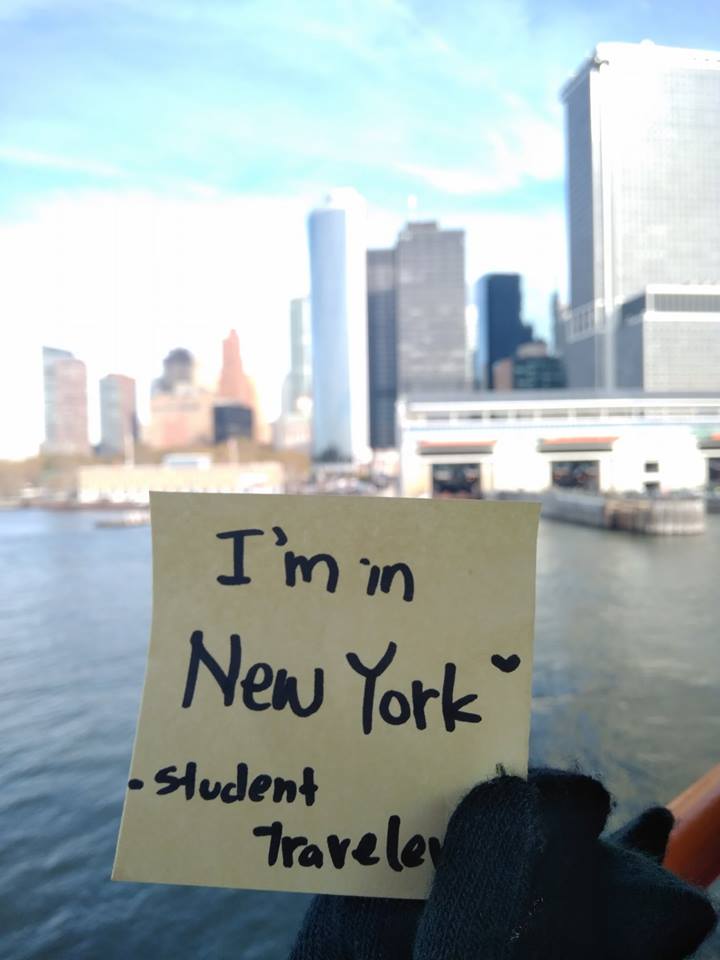 I'm in
New York
-student
Traveler